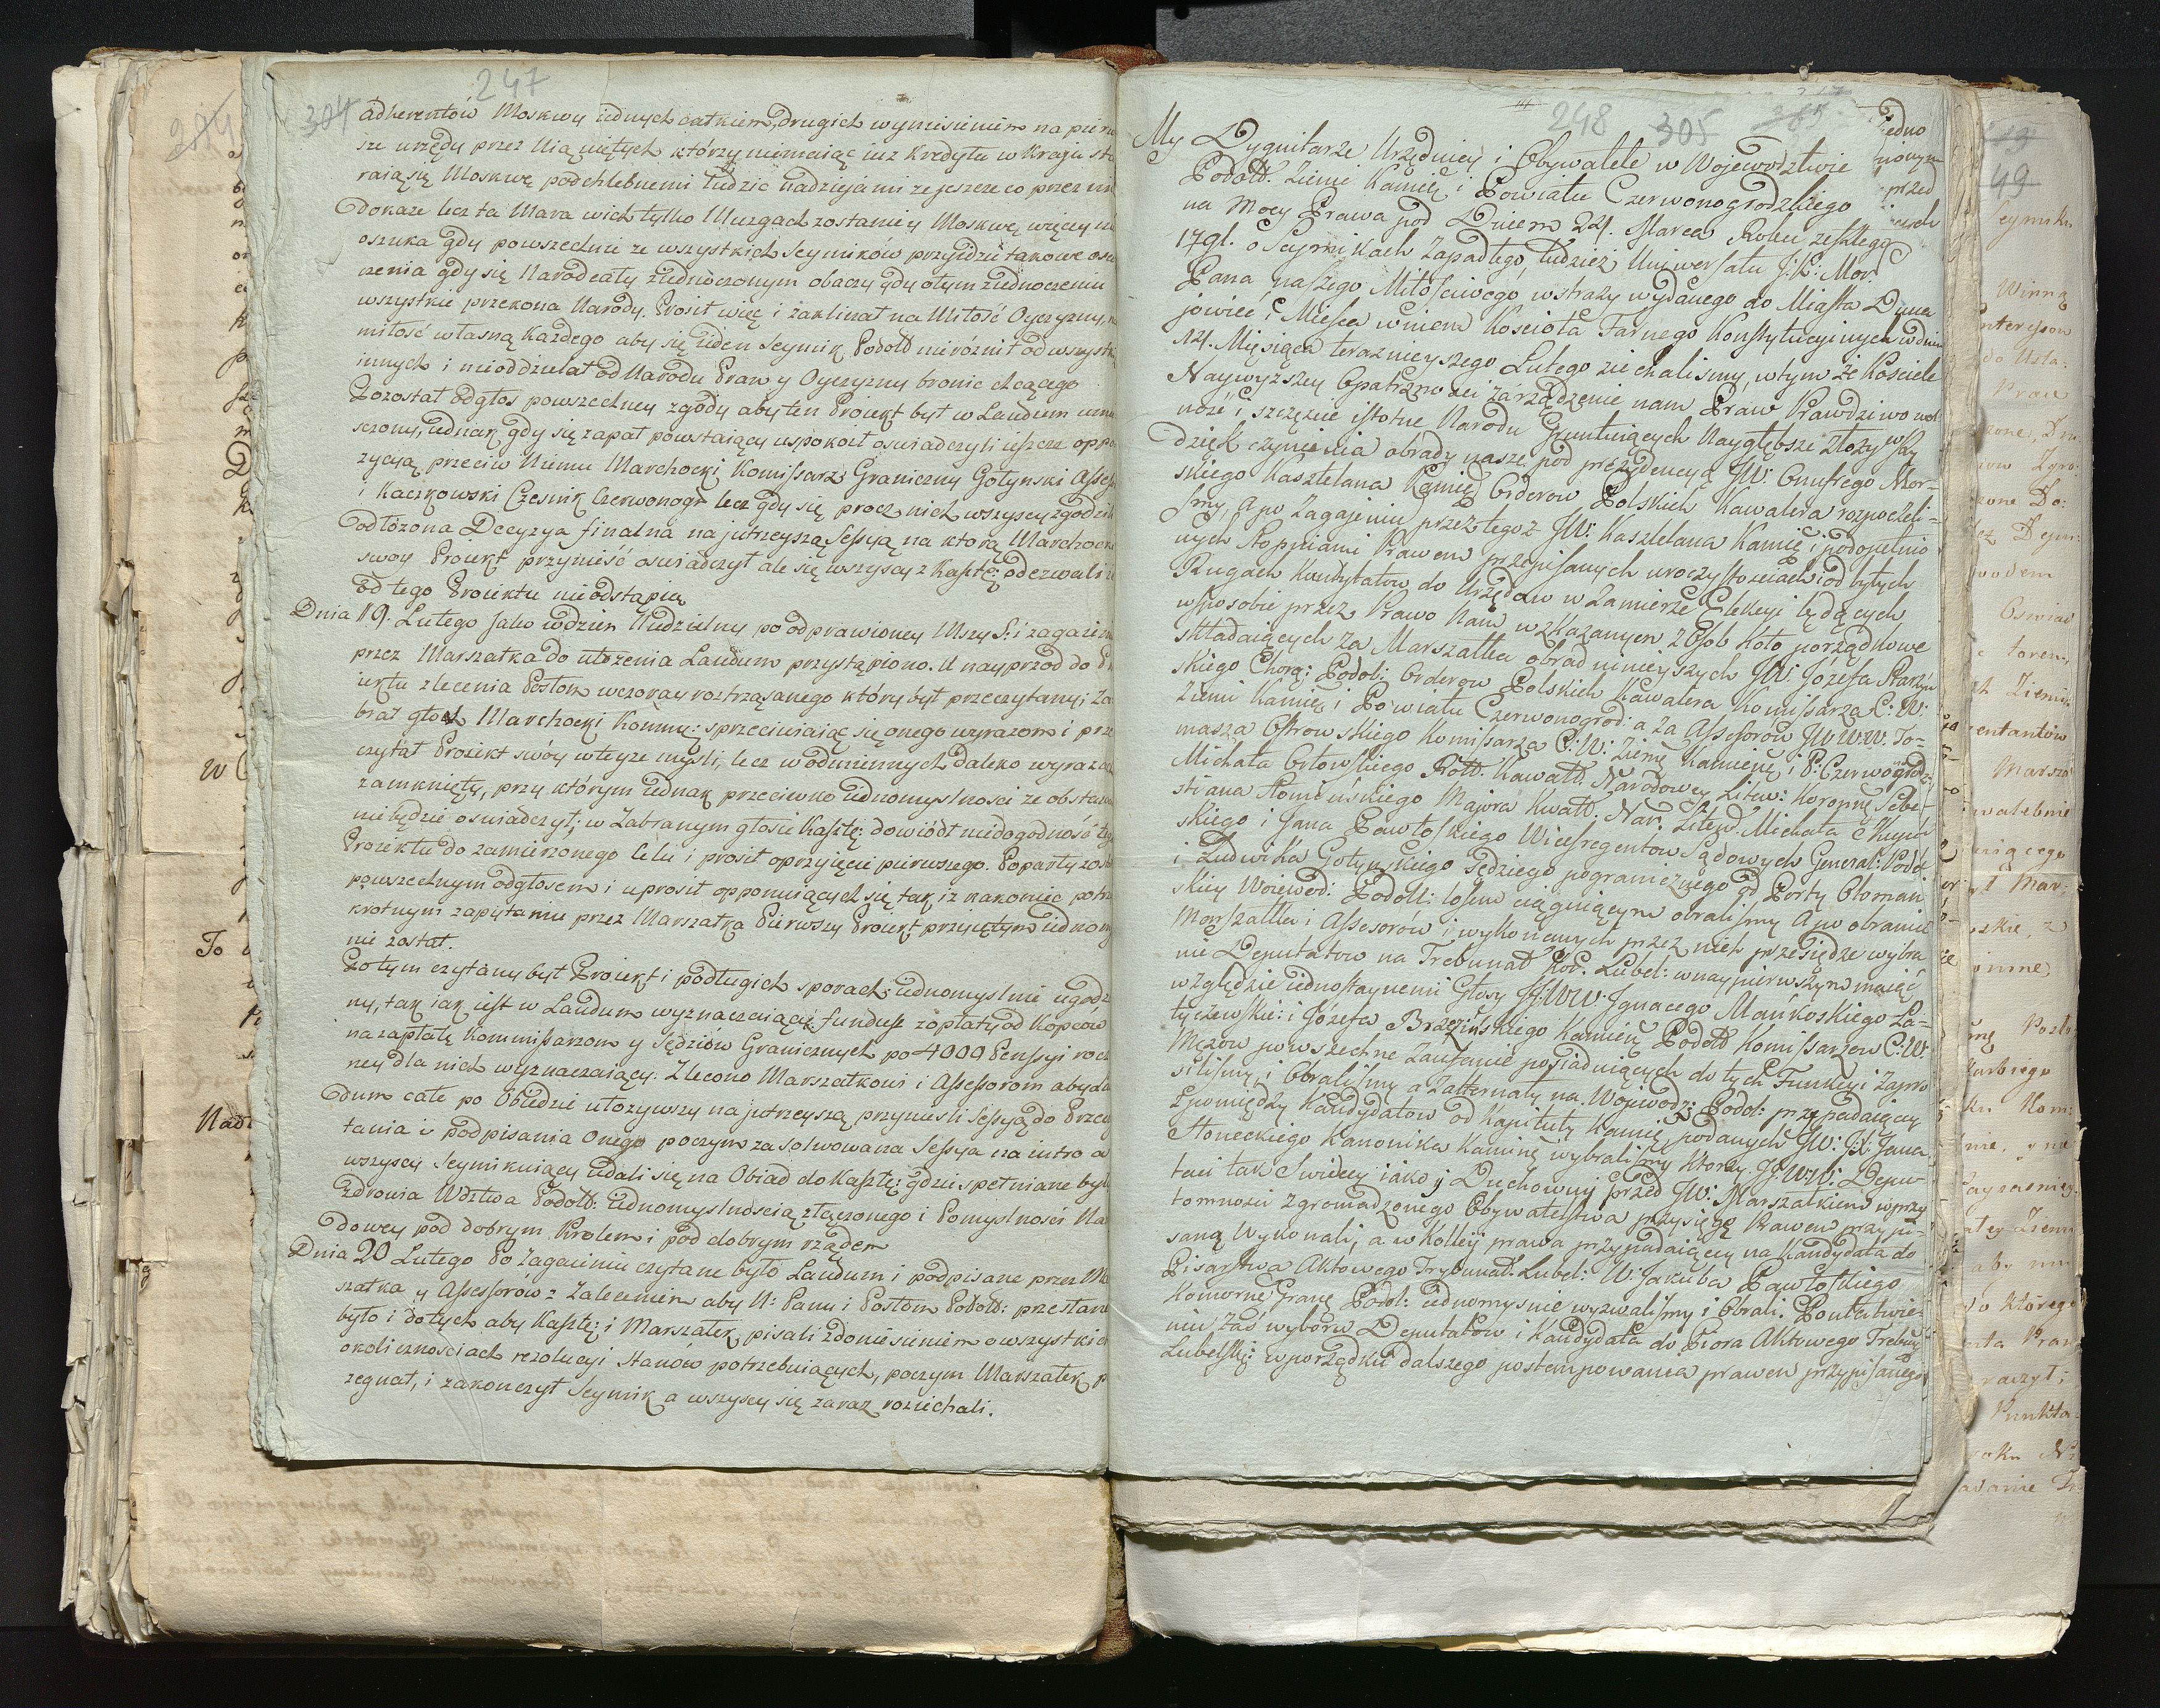 247
304
adherentów Moskwy iednych całkiem, drugich wymieśieniem na pierw
sze urzędy przez Nią uiętych którzy niemaiąc iuż Kredytu w Kraju sta
raią się Moskwę podchlebnemi łudzić nadziejami ze jeszcze co przez nich
dokaże lecz ta Mara w ich tylko Muzgach zostanie y Moskwę więcey nie
oszuka gdy powszechnie ze wszystkich Seymików przyidzie takowe oswiad
czenia gdy się Naród cały ziednoczonym obaczy gdy o tym ziednoczeniu
wszystkie przekona Narody. Prosił więc i zaklinał na Miłość Oyczyzny, na
miłość własną każdego aby się ieden Seymik Podoll nieróżnił od wszystkich
innych i nieoddzielał od Narodu Praw y Oyczyzny bronić chcącego
Pozostał odgłos powszechney zgody aby ten Proiekt był w Laudum umie
sczony, iednak gdy się zapał powstaiący uspokoił oswiadczyli ieszcze oppo
zycyą przeciw Niemu Marchocki Komissarz Graniczny Gołynski Assess
i Kaczkowski Czesnik Czerwonogr: lecz gdy się procz nich wszyscy zgodzili
odłożona Decyzya finalna na jutrzeyszą Sessyą na którą Marchocki
swoy Proiekt przynieść oswiadczył ale się wszyscy z Kasztę: odezwali iż
od tego Proiektu nieodstąpią
Dnia 19. Lutego jako w dzien Niedzielny po odprawioney Mszy S: i zagaieniu
przez Marszałka do ułożenia Laudum przystąpiono. A nayprzod do Pro
iektu zlecenia Posłom wczoray roztrząsanego który był przeczytany; Za
brał głos Marchocki Kommę: sprzeciwiaiąc się onego wyrazom i prze
czytał Proiekt swóy w teyze mysli, lecz w odmiennych daleko wyrazach
zamknięty, przy którym iednak przeciwko iednomyslnosci ze obstawać
niebędzie oswiadczył; w Zabranym głosie Kasztę: dowiódł niedogodność tego
Proiektu do zamierzonego Celu i prosił o przyięcie pierwszego. Poparty został
powszechnym odgłosem i uprosił opponuiących się tak iż nakoniec po trzy
krotnym zapytaniu przez Marszałka Pierwszy Proiekt przyiętym iednomysl
nie został.
Po tym czytany był Proiekt i po długich sporach iednomyslnie ugodzo
ny, tak iak iest w Laudum wyznaczaiący fundusz zopłaty od Kopców
na zapłatę Kommissarzom y Sędziów Granicznych po 4000 Pensyi rocz
ney dla nich wyznaczaiący. Zlecono Marszałkowi i Assessorom aby Lau
dum całe po Obiedzie ułożywszy na jutrzeyszą przyniesli Sessyą do Przeczy
tania i podpisania Onego poczym zasolwowana Sessya na iutro a
wszyscy Seymikuiący udali się na Obiad do Kasztę: gdzie spełniane były
Zdrowia Wdztwa Podoll: iednomyslnoscią złączonego i Pomyslności Na
dowey pod dobrym Krolem i pod dobrym rządem
Dnia 20 Lutego Po Zagaieniu czytane było Laudum i podpisane przez Mar
szałka y Assessorów z Zaleceniem aby N: Panu i Posłom Podoll: przesłane
było i do tych aby Kasztę: i Marszałek pisali z doniesieniem o wszystkich
okolicznosciach rezolucyi Stanów potrzebuiących, poczym Marszałek po
żegnał, i zakonczył Seymik a wszyscy się zaraz roziechali.
248 305
My Dygnitarze Urzędnicy i Obywatele w Wojewodztwie
Podoll. Ziemi Kamię i Powiatu Czerwonogrodzkiego
na mocy Prawa pod Dniem 24. Marca Roku zeszłego
1791. o Seymikach Zapadłego, tudzież Uniwersału J: K: Mci
Pana naszego Miłościwego w straży wydanego do Miasta Duna
jowiec i Mieysca w niem Kościoła Farnego Konstytucyinych w dniu
14. Miesiąca teraznieyszego Lutego ziechalismy, w tym że Kościele
Naywyższey Opatrzności zarządzenie nam Praw Prawdziwo wol
ność i szczęście istotne Narodu Gruntuiących Naygłębsze złożywszy
dzięk czynienia obrady nasze pod prezydencyą JW: Onufrego Mor=
skiego Kasztelana Kamię Orderow Polskich Kawalera rozpoczeli=
smy, A po Zagajeniu przez tegoż JW: Kasztelana Kamię i podopełnio
nych stopniami Prawem przepisanych uroczystosciach i odbytych
Rugach Kandydatów do Urzędów w Zamierze Elekcyi będących
w sposobie przez Prawo Nam wskazanym z Osob Koło porządkowe
składaiących Za Marszałka obrad ninieyszych JW: Józefa Starzyń
skiego Chorą: Podol: Orderow Polskich Kawalera Komissarza C: W:
Ziemi Kamię i Powiatu Czerwonogrod: a Za Assesorów JWWW. To=
masza Ostrowskiego Komissarza C: W: Ziemi Kamienię i P: Czerwonogrodz:
Michała Orłowskiego Rott. Kawall. Narodowey Litew: Koronnę Seba-
stiana Slomińskiego Majora Kwall. Nar: Litew. Michała Kuyaw
skiego i Jana Pawłoskiego Wiceregentów Sądowych General: Podol
i Ludwika Gołyńskiego Sędziego pogranicznego od Porty Ottomań
skiey Woiewod: Podoll: losem ciągniącym obralismy A po obraniu
Marszałka i Assesorów i wykonanych przez nich przesiędze wybra
nie Deputatow na Trebunał Kor. Lubel: w naypierwszym maiąć
względzie iednostaynemi Głosy JJ:WW: Jgnacego Mańkoskiego La=
tyczewskie: i Józefa Brzezińskiego Kamienę Podoll Komissarzow C:W:
Mężow powszechne Zaufanie posiadaiących do tych Funkcyi Zapro
silismy, i Obralismy a Zatternatę na Wojewodz: Podol: przypadaiący
Zpomiędzy Kandydatow od Kapituły Kamię podanych JW: X: Jana
Słoneckiego Kanonika Kaminę wybralismy Którzy JJ:WW: Depu
taci tak Swieccy iako y Duchowny przed JW: Marszałkiem w przy
tomności Zgromadzonego Obywatelstwa przysięgę Prawem przepi=
saną Wykonali, a w Kolleij prawa przypadaiącey na Kandydata do
Pisarstwa Aktowego Trybunał. Lubel: W: Jakuba Pawłoskiego
Komornę Granę Podol: iednomysnie wyzwalismy i Obrali. Po ułatwie
niu Zaś wyborów Deputatow i Kandydata do Piora Aktowego Trebun
Lubelskę: w porządku dalszego postempowania prawem przypisanego